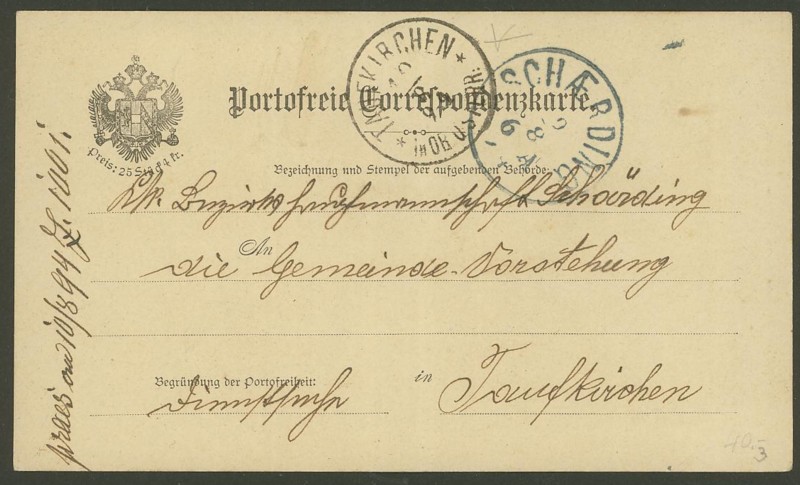 Portofreie Correspondenzkarte.
TAUFKIRCHEN
SCHÆRDING
Preis: 25 Stück 4 kr.
Bezeichnung und Stempel der aufgebenden Behörde:
k.k. Bezirkshauptmannschaft Schärding
An
die Gemeinde-Vorstehung
Begründung der Portofreiheit:
in
Dienstsache
Taufkirchen
praes am 10/8 94 Z. 1001.
40.-
3